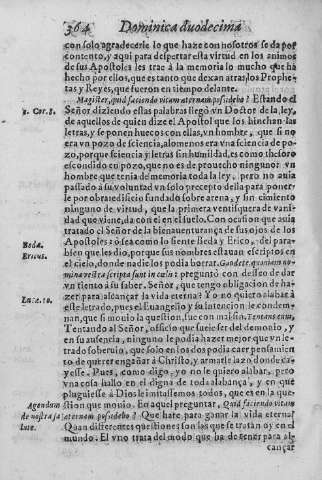 364 Dominica duodecima
con solo agradecerle lo que haze con nosotros se da por
contento, y aqui para despertar esta virtud en los animos
de sus Apostoles les trae à la memoria lo mucho que hà
hecho por ellos, que es tanto que dexan atras, los Prophe-
tas y Reyes, que fueron en tiempo delante.
Magister, quid faciendo vitam æternam possidebo? Estando el
1. Cor. 8. Señor diziendo estas palabras llegò vn Doctor de la ley,
de aquellos de quien dize el Apostol que los hinchan las
letras, y se ponen huecos con ellas, vn hombre, que si no
era vn pozo de sciencia, alomenos era vna sciencia de po-
zo, porque sciencia y letras sin humildad, es como thesoro
escondido en pozo, que no es de prouecho ninguno: vn
hombre que tenia de memoria toda la ley, pero no auia
passado à su voluntad vn solo precepto della para poner-
le por obra: edificio fundado sobre arena, y sin cimiento
ninguno de virtud, que la primera ventisquera de vani-
dad que viene, da con el en el suelo. Con ocasion que auia
tratado el Señor de la bienauenturança de sus ojos de los
Beda. Apostoles: ò sea como lo siente Beda y Erico, del para-
Ericus. bien que les dio, porque sus nombres estauan escriptos en
el cielo, donde nadie los podia borrar. Gaudete quoniam no-
mina vestra scripta sunt in cœlis: preguntò con desseo de dar
vn tiento à su saber. Señor, que tengo obligacion de ha-
Luc. c. 10. zer para alcançar la vida eterna? Yo no quiero alabar à
este letrado, pues el Euangelio y su intencion le condem-
nan, que si mouio la question, fue con malicia, Tentans eum,
Tentando al Señor, officio que suele ser del demonio, y
en su ausencia, ninguno le podia hazer mejor que vn le-
trado soberuio, que solo en los dos podia caer pensamien-
to de querer engañar à Christo, y armarle lazo donde ca-
yesse. Pues, como digo, yo no le quiero alabar, pero
vna cosa hallo en el digna de toda alabança, y en que
pluguiesse à Dios le imitassemos todos, que es en la que-
Agendum stion que mouio. En aquel preguntar, Quid faciendo vitam
de nostra sa æternam possidebo? Que harè para ganar la vida eterna?
lute. Quan differentes questiones son los que se tratan oy en el
mundo. El vno trata del modo que ha de tener para al-
cançar